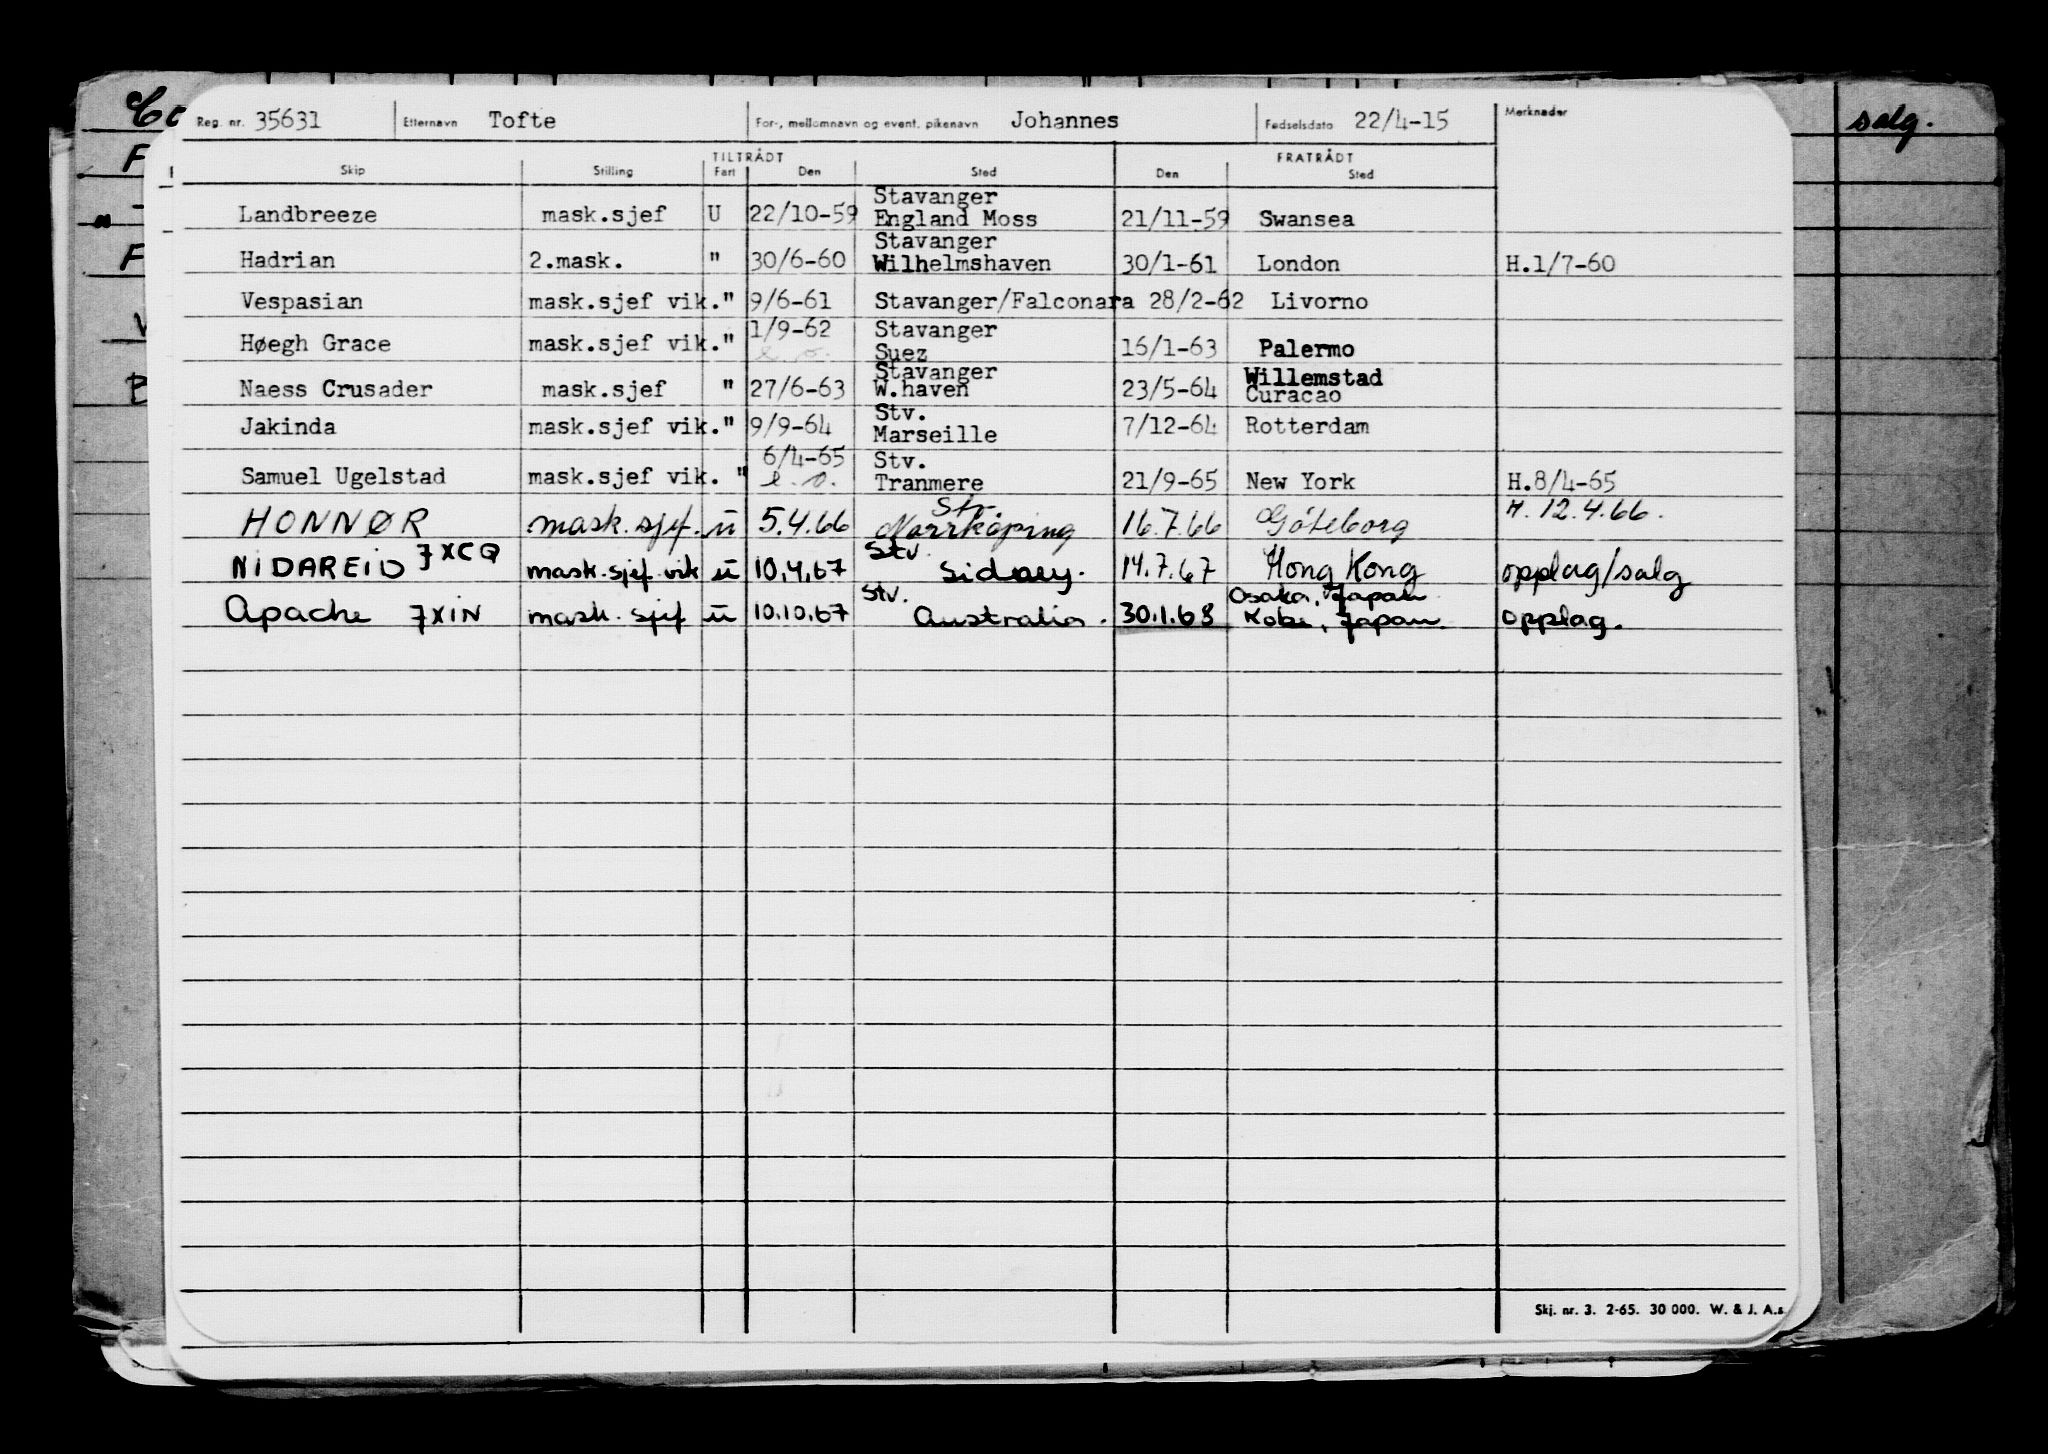 Reg. nr. 35631 Etternavn Tofte For-, mellomnavn og event. pikenavn Johannes Fødselsdato 22/4-15 Merknader
salg.
TILTRÅDT FRATRÅDT
Skip Stilling Fart Den Sted Den Sted
Stavanger
Landbreeze mask.sjef U 22/10-59 England Moss 21/11-59 Swansea
Stavanger
Hadrian 2.mask. " 30/6-60 Wilhelmshaven 30/1-61 London H.1/7-60
Vespasian mask.sjef vik." 9/6-61 Stavanger/Falconara 28/2-62 Livorno
1/9-62 Stavanger
Høegh Grace mask.sjef vik." e.o. Suez 16/1-63 Palermo
Stavanger Willemstad
Naess Crusader mask.sjef " 27/6-63 W.haven 23/5-64 Curacao
Stv.
Jakinda mask.sjef vik." 9/9-64 Marseille 7/12-64 Rotterdam
6/4-65 Stv.
Samuel Ugelstad mask.sjef vik. " e.o. Tranmere 21/9-65 New York H.8/4-65
Stv.
HONNØR mask.sjef. u 5.4.66 Norrköping 16.7.66 Göteborg H. 12.4.66.
Stv.
NIDAREID 7XCQ mask.sjef vik u 10.4.67 Sidney. 14.7.67 Hong Kong opplag/salg
Stv. Osaka, Japan
Apache 7XIN mask. sjef u 10.10.67 Australia. 30.1.68 Kobe, Japan. opplag.
Skj. nr. 3. 2-65. 30 000. W. & J. A.s